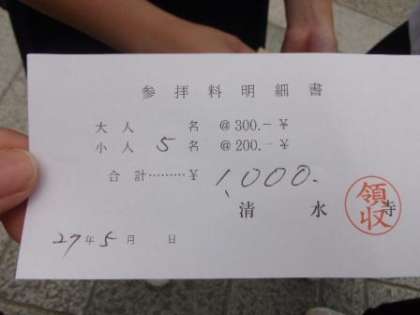 参拝料明細書
大人 名 @300.-¥
小人 5 名 @200.-¥
合計………¥ 1,000.-
清水寺
領収
27年5月 日